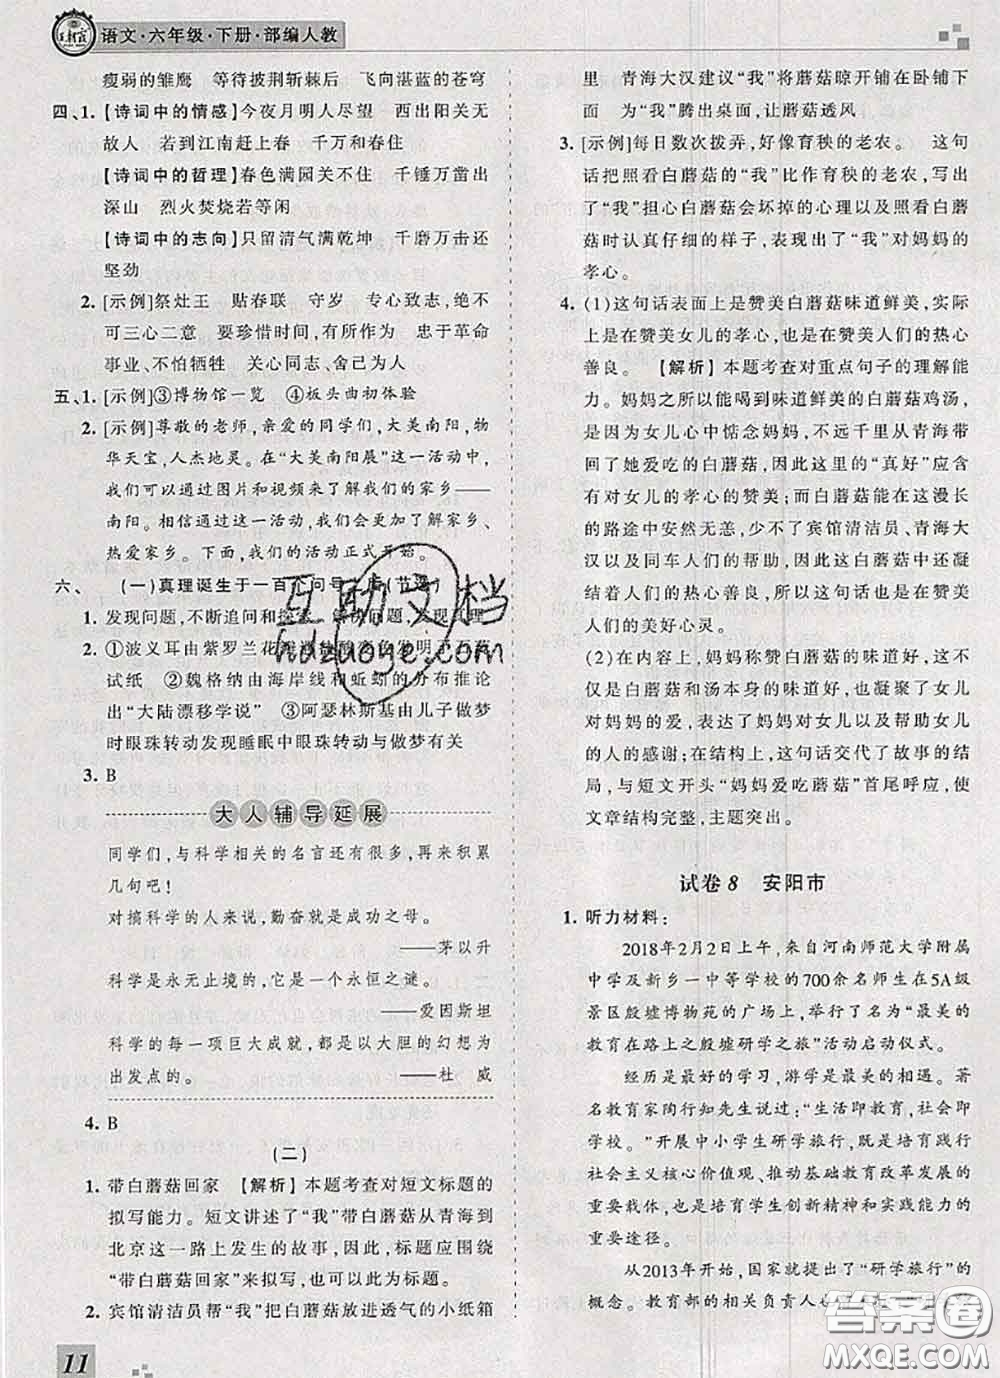 王朝霞
语文·六年级·下册·部编人教
瘦弱的雏鹰　等待披荆斩棘后　飞向湛蓝的苍穹
四、1.【诗词中的情感】今夜月明人尽望　西出阳关无
故人　若到江南赶上春　千万和春住
【诗词中的哲理】春色满园关不住　千锤万凿出
深山　烈火焚烧若等闲
【诗词中的志向】只留清气满乾坤　千磨万击还
坚劲
2. [示例]祭灶王　贴春联　守岁　专心致志,绝不
可三心二意　要珍惜时间,有所作为　忠于革命
事业,不怕牺牲　关心同志、舍己为人
五、1. [示例]③博物馆一览　④板头曲初体验
2. [示例]尊敬的老师,亲爱的同学们,大美南阳,物
华天宝,人杰地灵。在“大美南阳展”这一活动中,
我们可以通过图片和视频来了解我们的家乡——
南阳。相信通过这一活动,我们会更加了解家乡、
热爱家乡。下面,我们的活动正式开始。
六、　(一)真理诞生于一百个问号之后(节选)
1. 发现问题,不断追问和探索　解决问题,发现真理
2. ①波义耳由紫罗兰花遇盐酸变色发明了石蕊
试纸　②魏格纳由海岸线和蚯蚓的分布推论
出“大陆漂移学说”　③阿瑟林斯基由儿子做梦
时眼珠转动发现睡眠中眼珠转动与做梦有关
3. B
大人辅导延展
同学们,与科学相关的名言还有很多,再来积累
几句吧!
对搞科学的人来说,勤奋就是成功之母。
——茅以升
科学是永无止境的,它是一个永恒之谜。
——爱因斯坦
科学的每一项巨大成就,都是以大胆的幻想为
出发点的。　——杜　威
4. B
(二)
1. 带白蘑菇回家　【解析】本题考查对短文标题的
拟写能力。短文讲述了“我”带白蘑菇从青海到
北京这一路上发生的故事,因此,标题应围绕
“带白蘑菇回家”来拟写,也可以此为标题。
2. 宾馆清洁员帮“我”把白蘑菇放进透气的小纸箱
11
里　青海大汉建议“我”将蘑菇晾开铺在卧铺下
面　为“我”腾出桌面,让蘑菇透风
3. [示例]每日数次拨弄,好像育秧的老农。　这句
话把照看白蘑菇的“我”比作育秧的老农,写出
了“我”担心白蘑菇会坏掉的心理以及照看白蘑
菇时认真仔细的样子,表现出了“我”对妈妈的
孝心。
4. (1)这句话表面上是赞美白蘑菇味道鲜美,实际
上是在赞美女儿的孝心,也是在赞美人们的热心
善良。　【解析】本题考查对重点句子的理解能
力。妈妈之所以能喝到味道鲜美的白蘑菇鸡汤,
是因为女儿心中惦念妈妈,不远千里从青海带
回了她爱吃的白蘑菇,因此这里的“真好”应含
有对女儿的孝心的赞美;而白蘑菇能在这漫长
的路途中安然无恙,少不了宾馆清洁员、青海大
汉以及同车人们的帮助,因此这句话中还凝
结着人们的热心善良,所以这句话也是在赞美
人们的美好心灵。
(2)在内容上,妈妈称赞白蘑菇的味道好,这不
仅是白蘑菇和汤本身的味道好,也凝聚了女儿
对妈妈的爱,表达了妈妈对女儿以及帮助女儿
的人的感谢;在结构上,这句话交代了故事的结
局,与短文开头“妈妈爱吃蘑菇”首尾呼应,使
文章结构完整,主题突出。
试卷8　安阳市
1. 听力材料:
2018年2月2日上午,来自河南师范大学附属
中学及新乡一中等学校的700余名师生在5A级
景区殷墟博物苑的广场上,举行了以“最美的
教育在路上之殷墟研学之旅”活动启动仪式。
经历是最好的学习,游学是最美的相遇。著
名教育家陶行知先生说过:“生活即教育,社会即
学校。”开展中小学生研学旅行,既是培育践行
社会主义核心价值观、推动基础教育改革发展的
重要载体,也是培育学生创新精神和实践能力的
重要途径。
从2013年开始,国家就提出了“研学旅行”的
概念。教育部的相关负责人也
互助文档
hdzuoye.com
答案圈
MXQE.COM